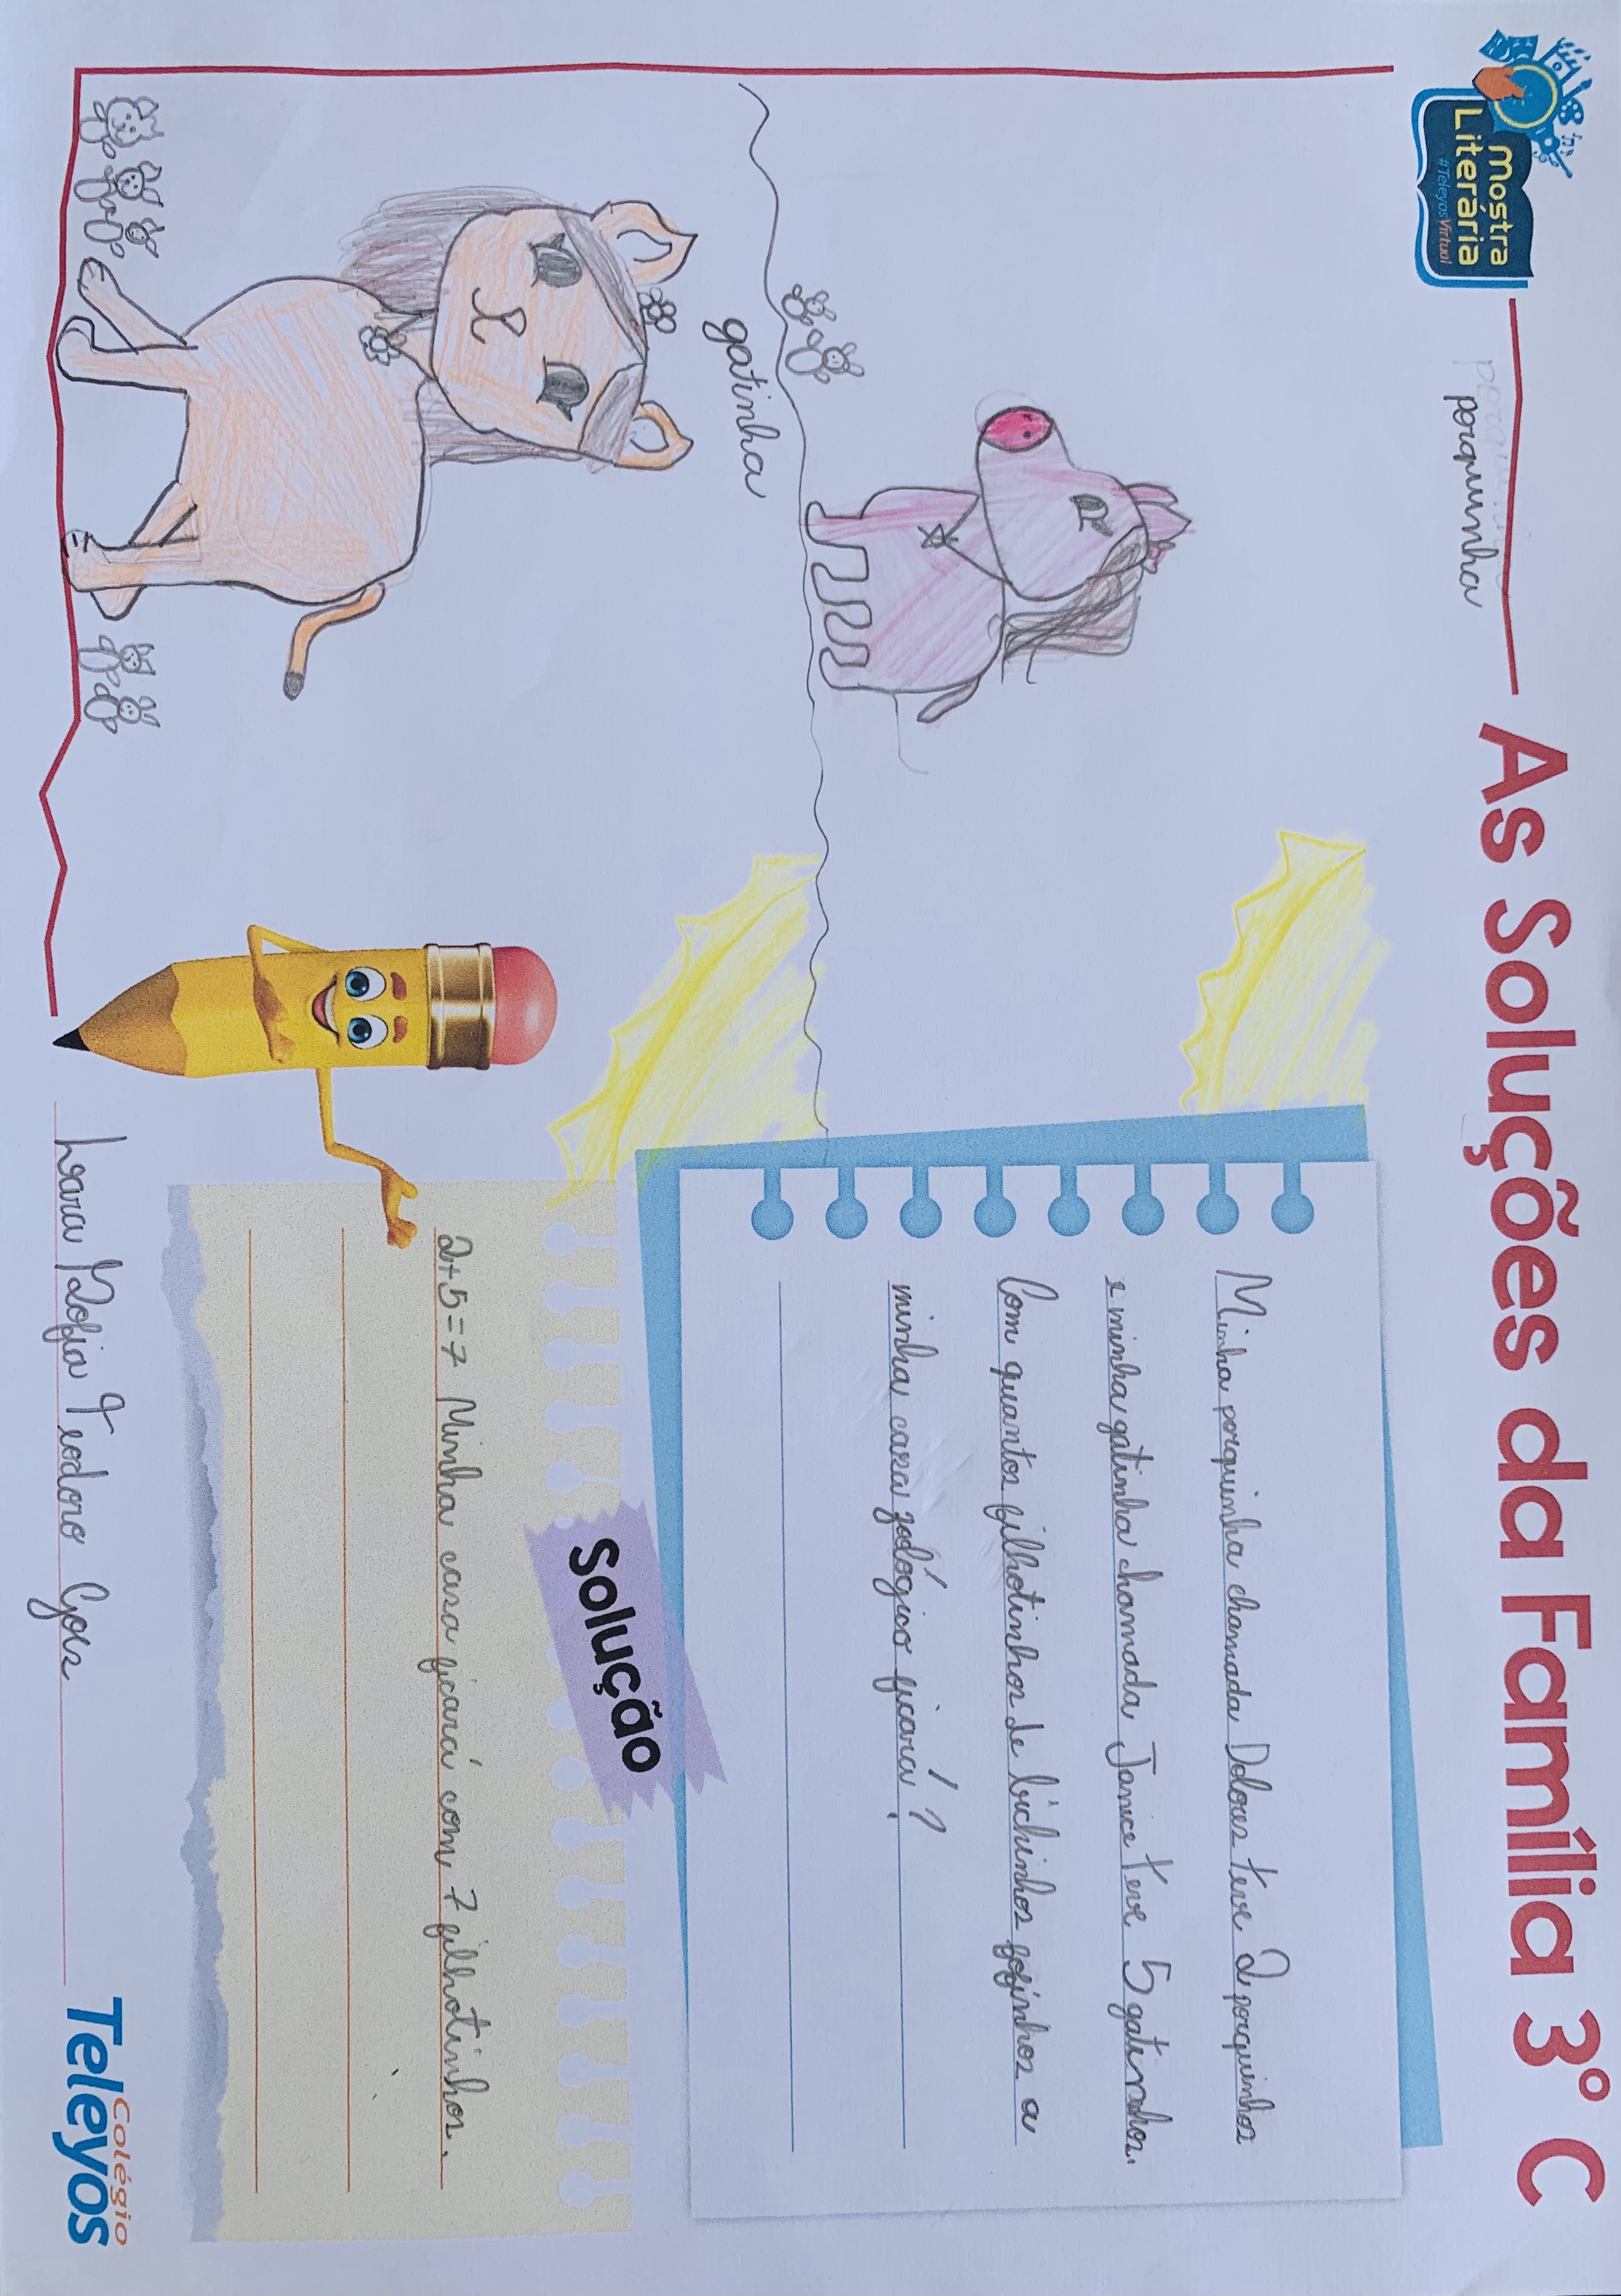 Mostra
Literária
#TeleyosVirtual
As Soluções da Família 3º C
porquinha
gatinha
Minha porquinha chamada Dolores teve 2 porquinhos
e minha gatinha chamada Janice teve 5 gatinhos.
Com quantos filhotinhos de bichinhos fofinhos a
minha casa zoológico ficará?
Solução
2+5=7 Minha casa ficará com 7 filhotinhos.
Lara Sofia Teodoro Gois
Colégio
Teleyos